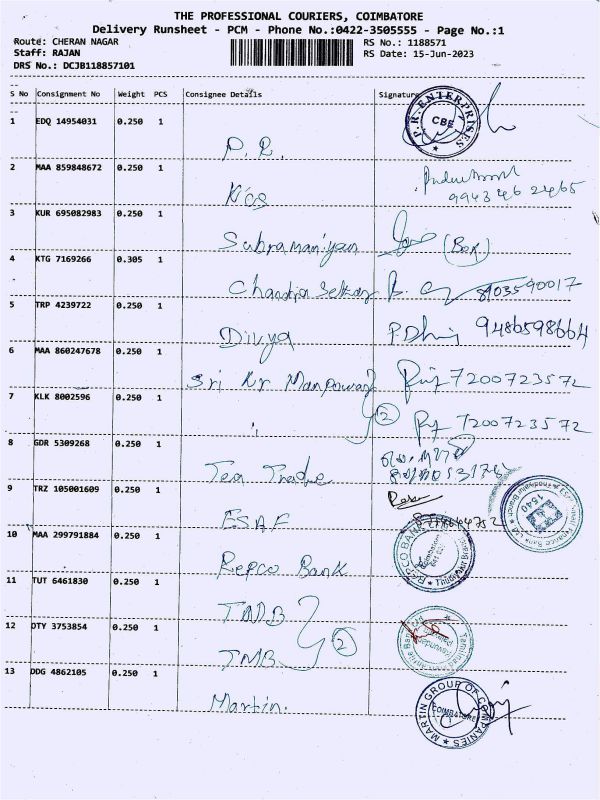 THE PROFESSIONAL COURIERS, COIMBATORE
Delivery Runsheet - PCM - Phone No.:0422-3505555 - Page No.:1
Route: CHERAN NAGAR RS No.: 1188571
Staff: RAJAN RS Date: 15-Jun-2023
DRS No.: DCJB118857101
S No Consignment No Weight PCS Consignee Details Signature
1 EDQ 14954031 0.250 1 P.R. P.R. ENTERPRISES CBE
2 MAA 859848672 0.250 1 9943 46 2465
3 KUR 695082983 0.250 1 Subramaniyan (Box)
4 KTG 7169266 0.305 1 Chandra Sekar 8903590017
5 TRP 4239722 0.250 1 Divya 9486598664
6 MAA 860247678 0.250 1 Sri Kr Manpower 7200723572
7 KLK 8002596 0.250 1 " 2 7200723572
8 GDR 5309268 0.250 1 Tea Trade
9 TRZ 105001609 0.250 1 ESAF
10 MAA 299791884 0.250 1 Repco Bank REPCO BANK
11 TUT 6461830 0.250 1 TMB
12 DTY 3753854 0.250 1 TMB 2
13 DDG 4862105 0.250 1 Martin. MARTIN GROUP OF COMPANIES COIMBATORE